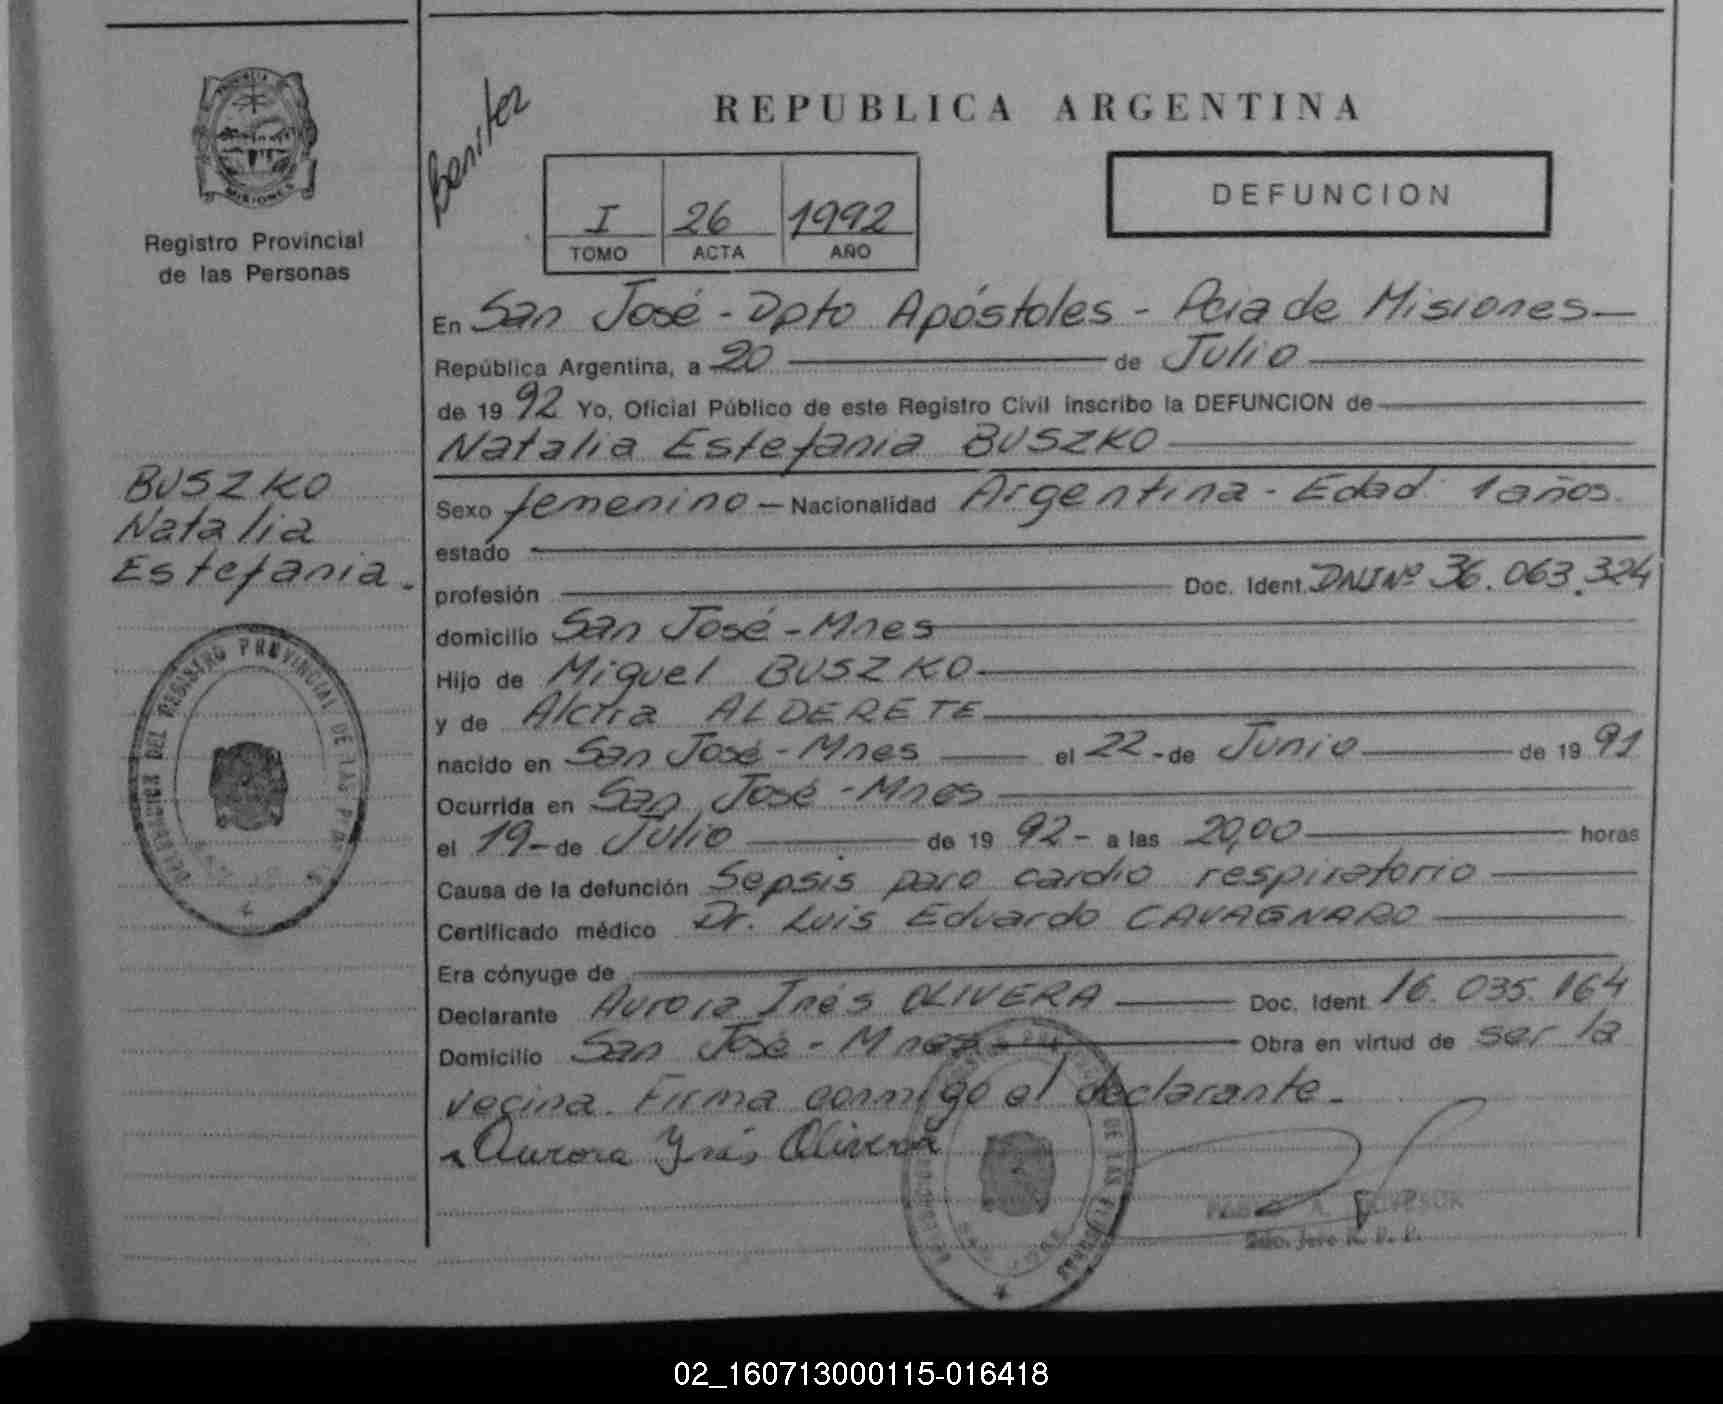 REPUBLICA ARGENTINA
Benitez
I 26 1992
TOMO ACTA AÑO
DEFUNCION
PROVINCIA DE
MISIONES
Registro Provincial
de las Personas
En San José - Dpto Apóstoles - Pcia de Misiones
República Argentina, a 20 de Julio
de 1992 Yo, Oficial Público de este Registro Civil inscribo la DEFUNCION de
Natalia Estefania BUSZKO
BUSZKO
Natalia
Estefania.
Sexo femenino - Nacionalidad Argentina - Edad: 1 años.
estado
profesión Doc. Ident. DNI Nº 36.063.324
domicilio San José - Mnes
Hijo de Miguel BUSZKO
y de ALDERETE
nacido en San José - Mnes el 22 - de Junio de 1991
Ocurrida en San José - Mnes
el 19 - de Julio de 1992 - a las 20,00 horas
Causa de la defunción Sepsis paro cardio respiratorio
Certificado médico Dr. Luis Eduardo CAVAGNARO
Era cónyuge de
Declarante Aurora Inés OLIVERA Doc. Ident. 16.035.164
Domicilio San José - Mnes Obra en virtud de ser la
vecina. Firma conmigo el declarante.
Aurora Inés Olivera
DEL REGISTRO PROVINCIAL DE LAS
DE LAS PERSONAS
02_160713000115-016418